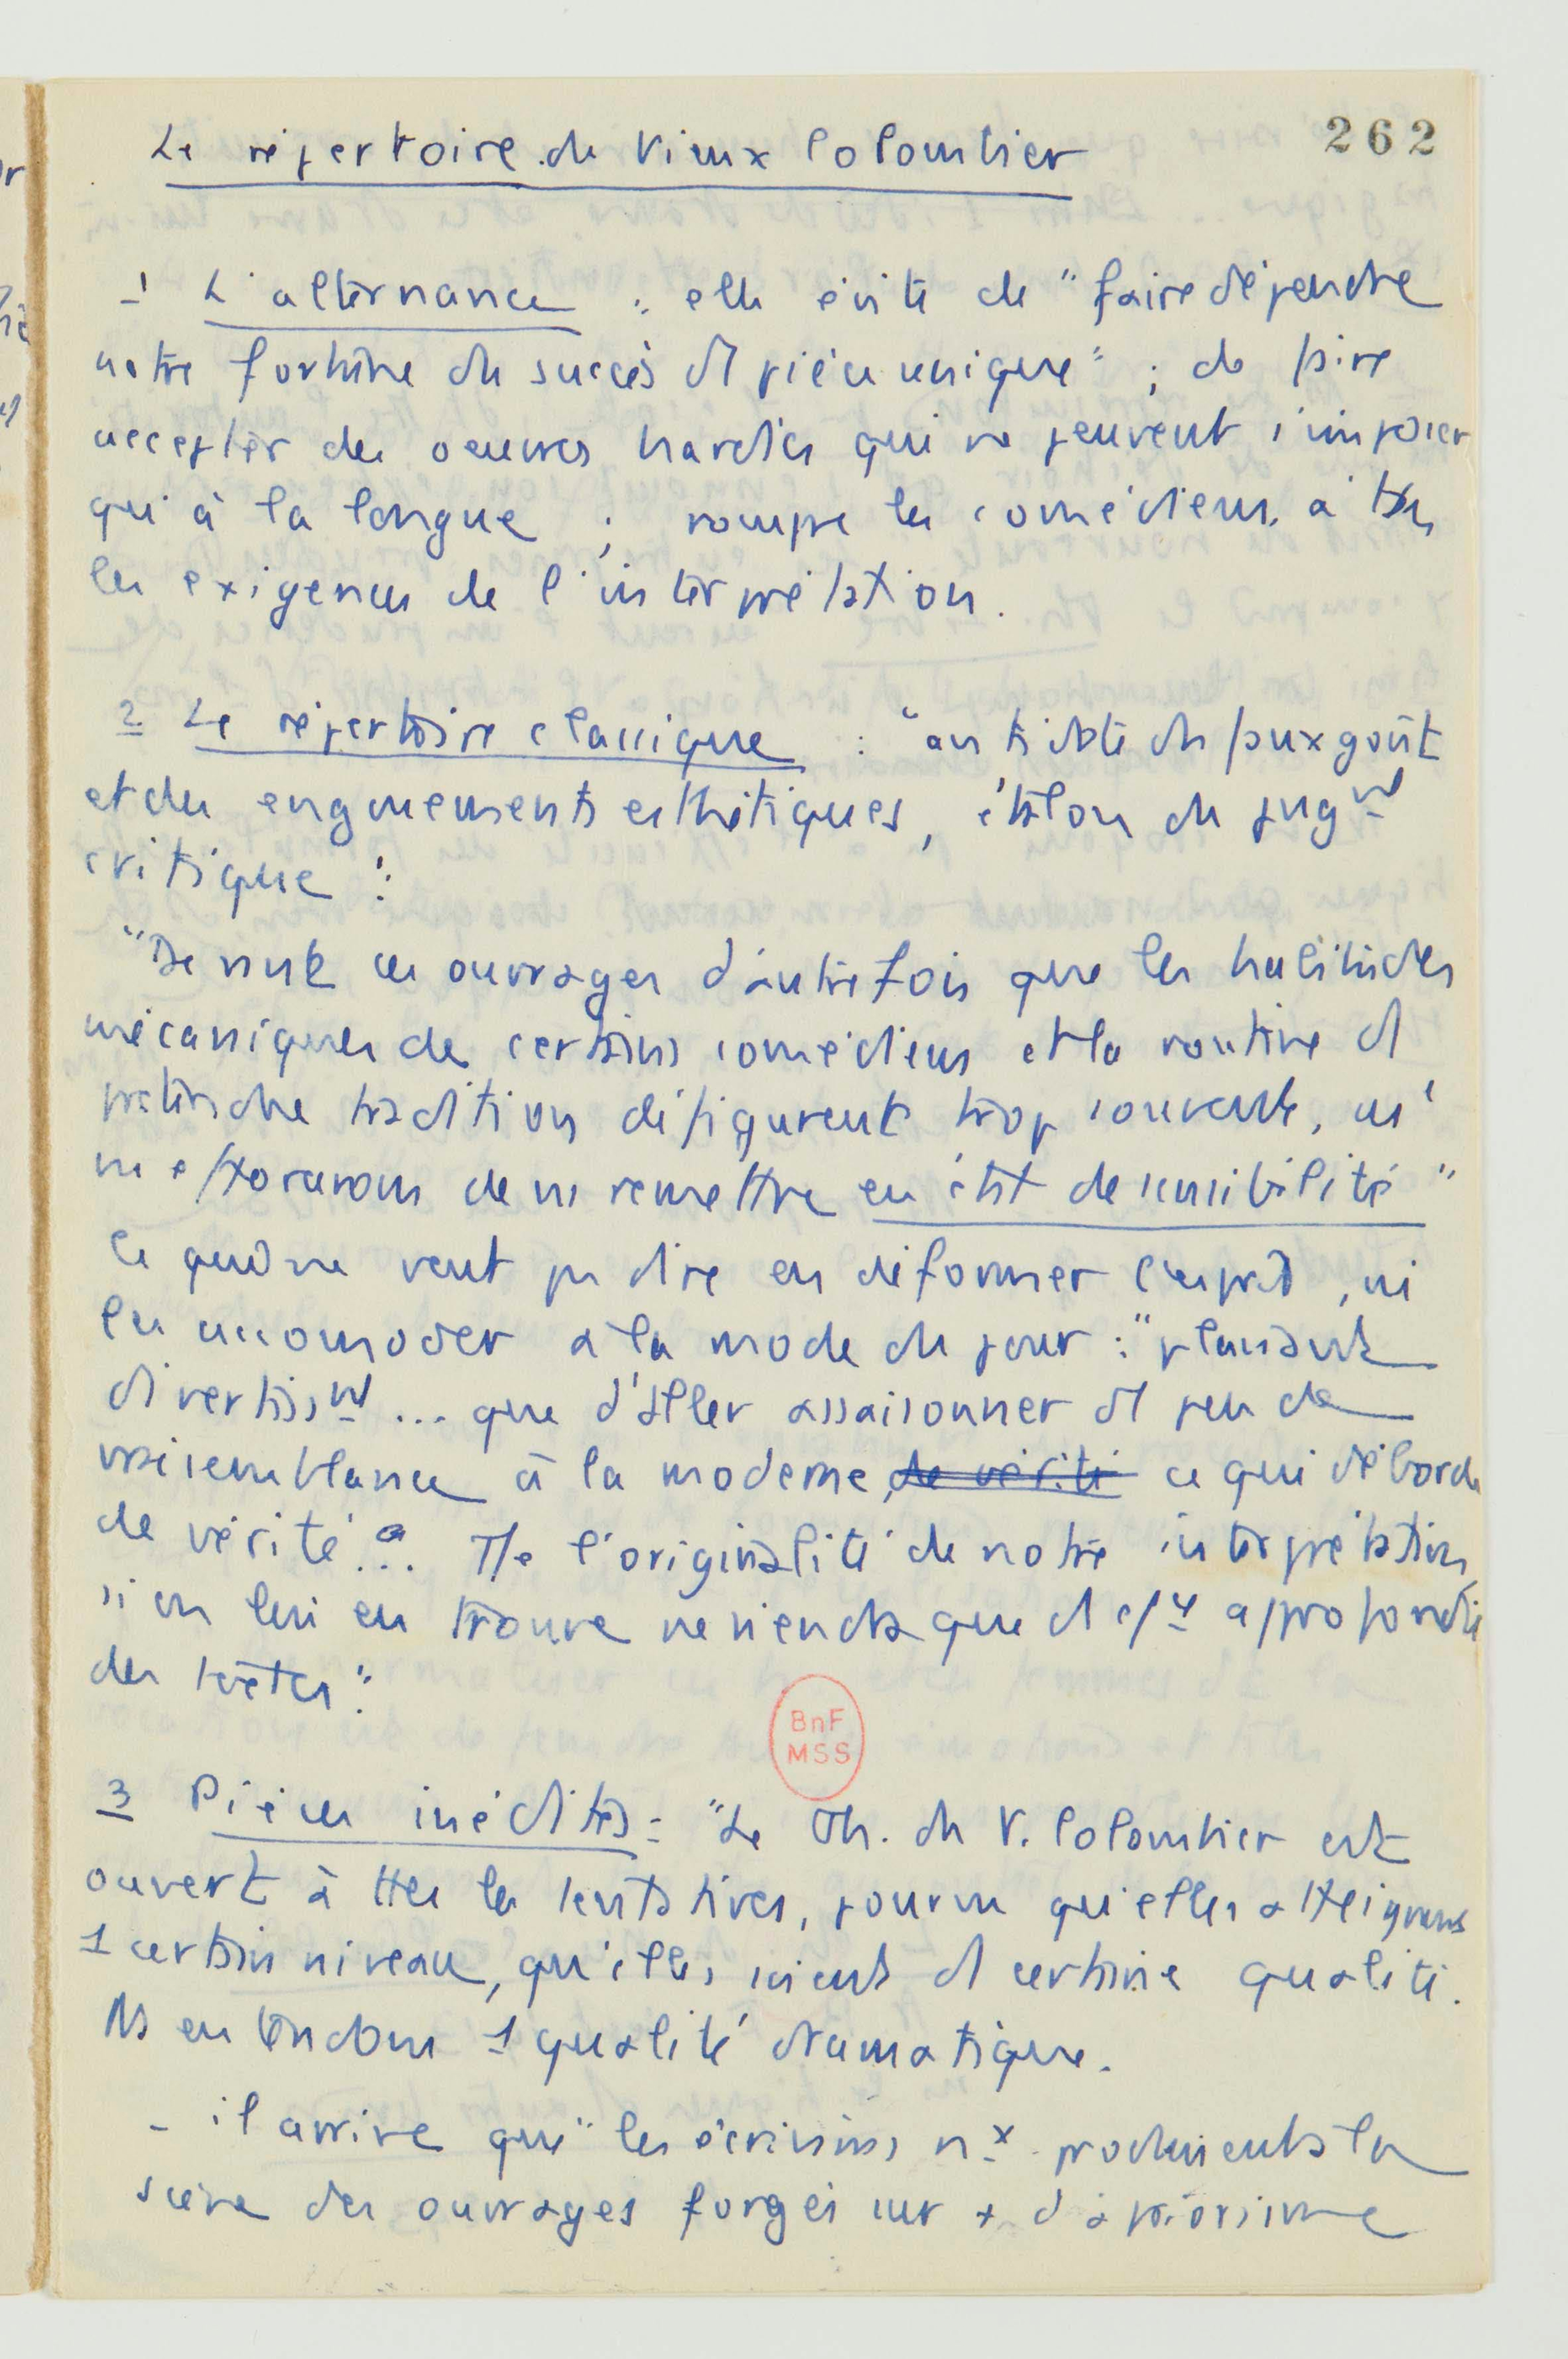 262
Le répertoire du Vieux Colombier
1 L'alternance : elle évite de "faire dépendre
notre fortune du succès d'1 pièce unique" ; de faire
accepter des oeuvres hardies qui ne peuvent s'imposer
qu'à la longue ; rompre les comédiens à ts
les exigences de l'interprétation.
2 Le répertoire classique : "antidote du faux goût
et des engouements esthétiques, étalon du jugnt
critique".
"Devant ces ouvrages d'autrefois que les habitudes
mécaniques de certains comédiens et la routine d'1
prétendue tradition défigurent trop souvent, ns
ns efforcerons de ns remettre en état de sensibilité"
Ce qui ne veut pas dire en déformer l'esprit, ni
les accomoder à la mode du jour : "plaisant
divertisnt ... que d'aller assaisonner d'1 peu de
vraisemblance à la moderne, de vérité ce qui déborde
de vérité... Tte l'originalité de notre interprétation,
si on lui en trouve ne viendra que d' approfondie
des textes".
3 Pièces inédites : "Le Th. du V. Colombier est
ouvert à ttes les tentatives, pourvu qu'elles atteignent
1 certain niveau, qu'elles soient d'1 certaine qualité.
Ns entendons 1 qualité dramatique.
- il arrive que "les écrivains nx produisent à la
scène des ouvrages forgés sur + d'apriorisme
BnF
MSS